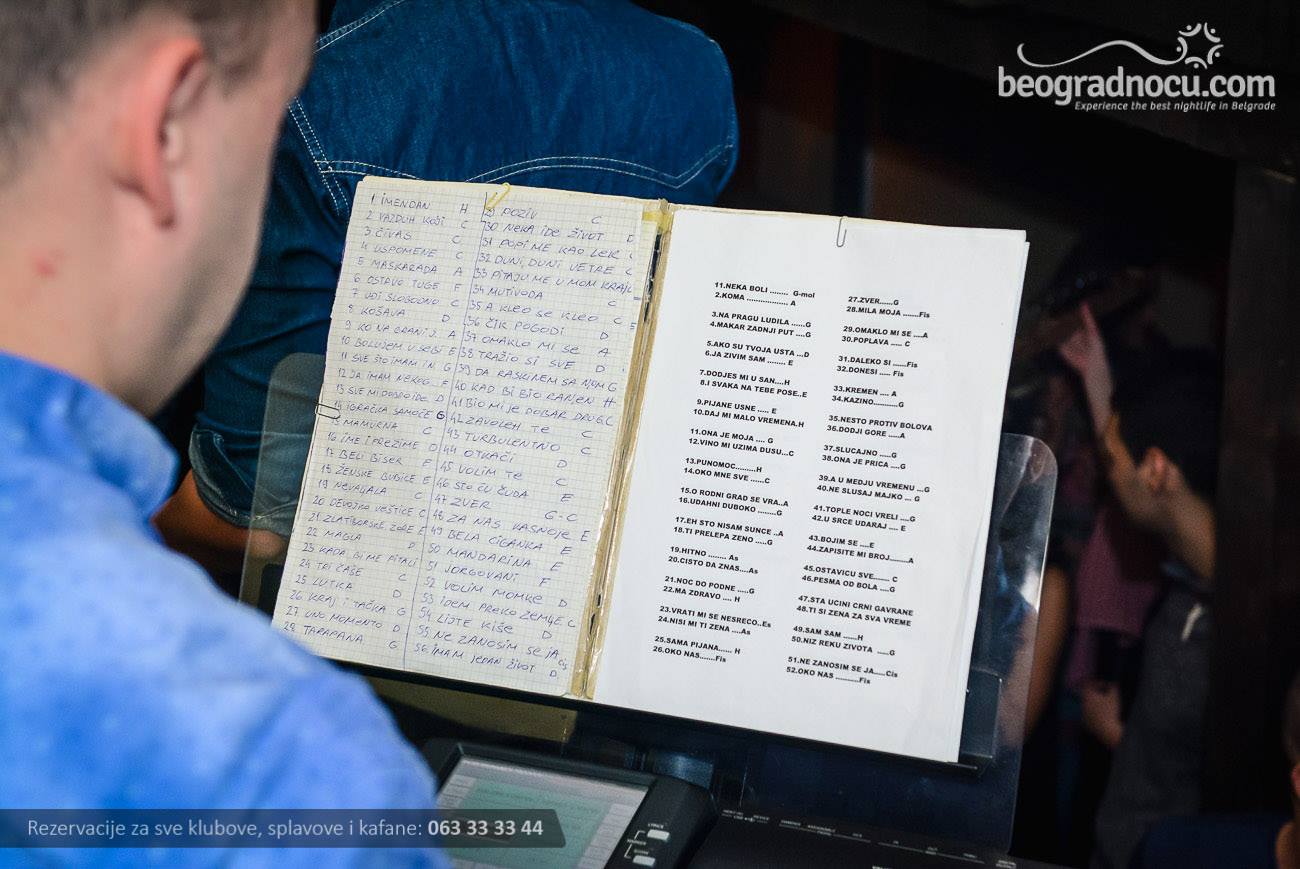 beogradnocu.com
Experience the best nightlife in Belgrade
1 IMENDAN H
2 VAZDUH KOŽI C
3 ČIVAS C
4 USPOMENE C
5 MASKARADA A
6 OSTAVO TUGE F
7 UĐI SLOBODNO C
8 KOŠAVA D
9 KO NA GRANI J. A
10 BOLUJEM U SEBI E
11 SVE ŠTO IMAM I N. G
12 JA IMAM NEKOG.. F
13 SVE MI DOBRO IDE D
14 IGRAČKA SAMOĆE G
15 MAMURNA C
16 IME I PREZIME D
17 BELI BISER F
18 ŽENSKE BUBICE E
19 NEVALJALA C
20 DEVOJKO VEŠTICE C
21 ZLATIBORSKE ZORE E
22 MAGLA D
23 KADA BI ME PITALI
24 TRI ČAŠE C
25 LUTKA D
26 KRAJ I TAČKA G
27 UNO MOMENTO D
28 TARAPANA G
29 POZIV C
30 NEKA IDE ŽIVOT D
31 POPI ME KAO LEK
32 DUNI, DUNI VETRE C
33 PITAJU ME U MOM KRAJU
34 MUTIVODA C
35 A KLEO SE KLEO C
36 ČIK POGODI D
37 OMAKLO MI SE A
38 TRAŽIO SI SVE D
39 DA RASKINEM SA NJOM G
40 KAD BI BIO RANJEN H
41 BIO MI JE DOBAR DRUG C
42 ZAVOLEH TE C
43 TURBULENTNO C
44 OTKAČI D
45 VOLIM TE C
46 ŠTO ĆU ČUDA E
47 ZVER G-C
48 ZA NAS KASNO JE E
49 BELA CIGANKA E
50 MANDARINA E
51 JORGOVANI F
52 VOLIM MOMKE D
53 IDEM PREKO ZEMLJE C
54 LIJTE KIŠE D
55 NE ZANOSIM SE JA Cis
56 IMAM JEDAN ŽIVOT D
11.NEKA BOLI ........ G-mol
2.KOMA .................. A
3.NA PRAGU LUDILA ......G
4.MAKAR ZADNJI PUT ....G
5.AKO SU TVOJA USTA ...D
6.JA ZIVIM SAM ........ E
7.DODJES MI U SAN....H
8.I SVAKA NA TEBE POSE..E
9.PIJANE USNE ..... E
10.DAJ MI MALO VREMENA.H
11.ONA JE MOJA .... G
12.VINO MI UZIMA DUSU...C
13.PUNOMOC.........H
14.OKO MNE SVE ......C
15.O RODNI GRAD SE VRA..A
16.UDAHNI DUBOKO ........G
17.EH STO NISAM SUNCE ..A
18.TI PRELEPA ZENO .....G
19.HITNO ........ As
20.CISTO DA ZNAS....As
21.NOC DO PODNE .....G
22.MA ZDRAVO .... H
23.VRATI MI SE NESRECO..Es
24.NISI MI TI ZENA ....As
25.SAMA PIJANA...... H
26.OKO NAS.......Fis
27.ZVER......G
28.MILA MOJA ........Fis
29.OMAKLO MI SE ....A
30.POPLAVA ..... C
31.DALEKO SI ......Fis
32.DONESI ..... Fis
33.KREMEN .... A
34.KAZINO...........G
35.NESTO PROTIV BOLOVA
36.DODJI GORE .....A
37.SLUCAJNO .....G
38.ONA JE PRICA ....G
39.A U MEDJU VREMENU ...G
40.NE SLUSAJ MAJKO ... G
41.TOPLE NOCI VRELI ....G
42.U SRCE UDARAJ .... E
43.BOJIM SE ....E
44.ZAPISITE MI BROJ.......A
45.OSTAVICU SVE....... C
46.PESMA OD BOLA ....G
47.STA UCINI CRNI GAVRANE
48.TI SI ZENA ZA SVA VREME
49.SAM SAM ......H
50.NIZ REKU ZIVOTA .....G
51.NE ZANOSIM SE JA.....Cis
52.OKO NAS ..........Fis
Rezervacije za sve klubove, splavove i kafane: 063 33 33 44